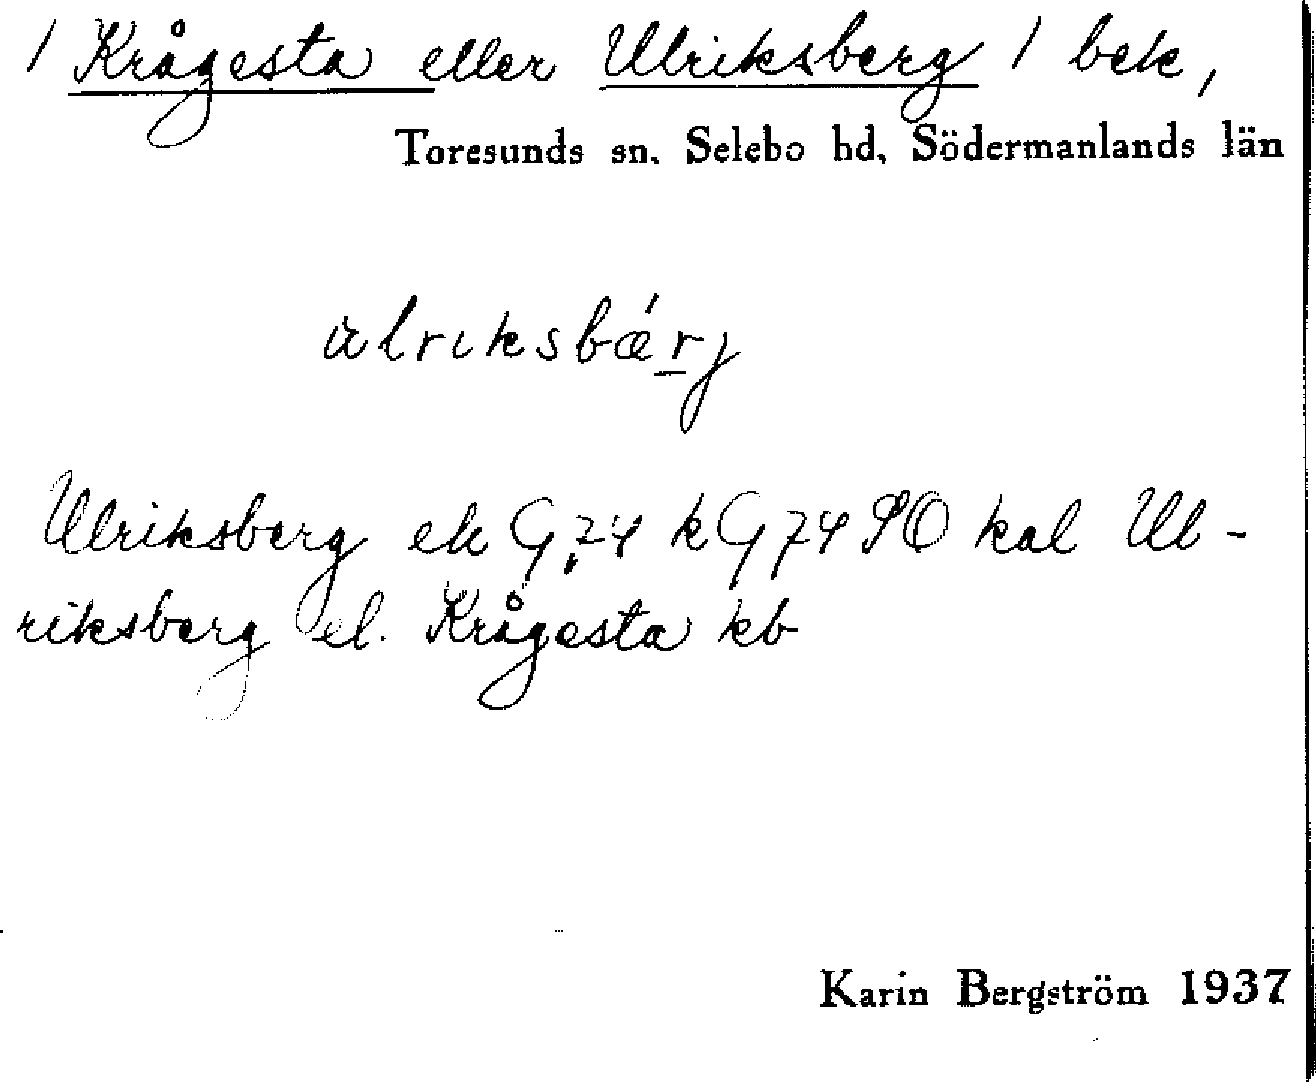 / Krågesta eller Ulriksberg / bek,
Toresunds sn. Selebo hd, Södermanlands län
ulriksbǽrj
Ulriksberg ek G 74 k G 74 90 kal Ul-
riksberg el. Krågesta kb
Karin Bergström 1937